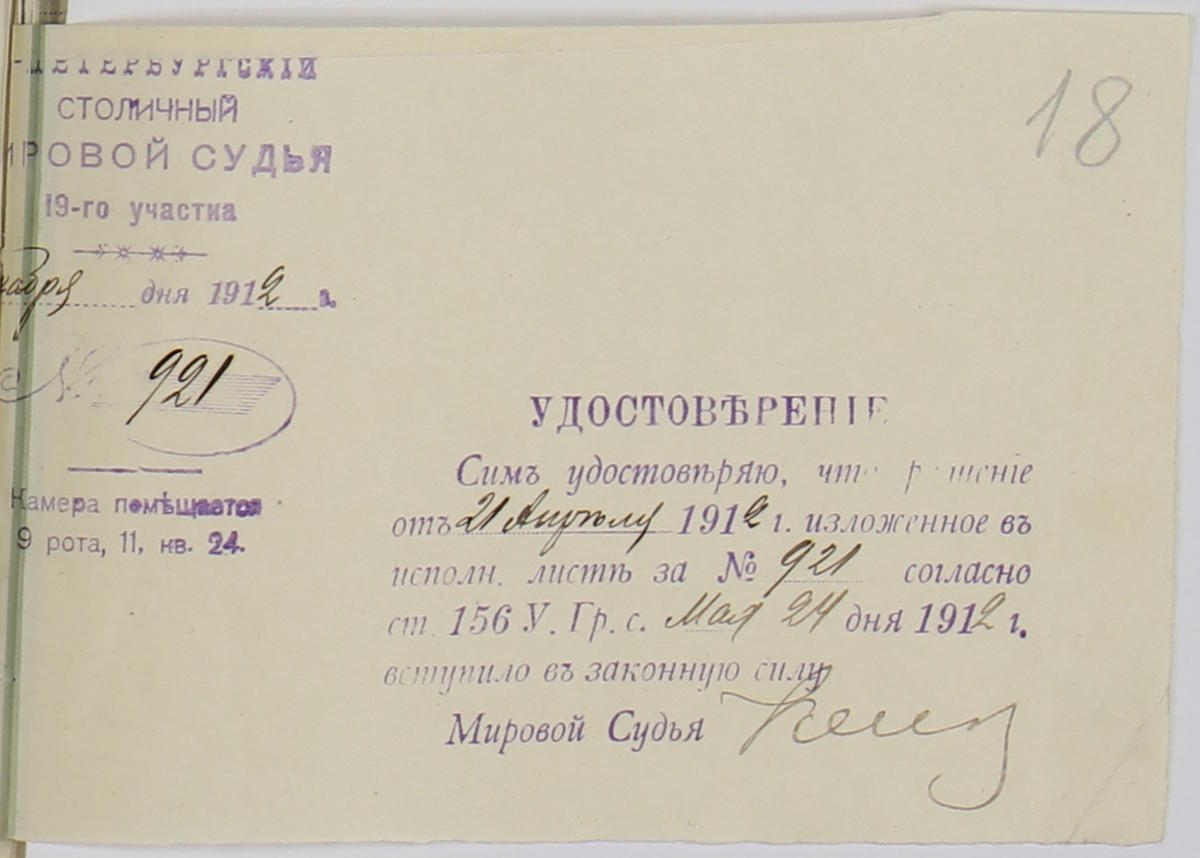 -ПЕТЕРБУРГСКІЙ
СТОЛИЧНЫЙ
ИРОВОЙ СУДЬЯ
19-го участка
дня 1912 г.
№ 921
Камера помѣщается
9 рота, 11, кв. 24.
18
УДОСТОВѢРЕНІЕ
Симъ удостовѣряю, что рѣшеніе
отъ 21 Апрѣля 1912 г. изложенное въ
исполн. листѣ за № 921 согласно
ст. 156 У. Гр. с. Мая 24 дня 1912 г.
вступило въ законную силу
Мировой Судья